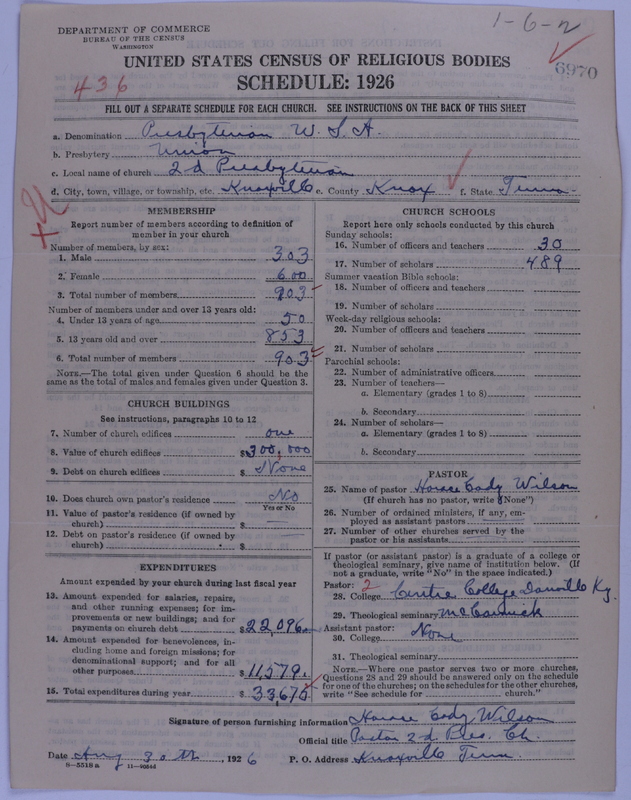 1-6-2
DEPARTMENT OF COMMERCE
BUREAU OF THE CENSUS
WASHINGTON
UNITED STATES CENSUS OF RELIGIOUS BODIES
6970
SCHEDULE: 1926
436
FILL OUT A SEPARATE SCHEDULE FOR EACH CHURCH. SEE INSTRUCTIONS ON THE BACK OF THIS SHEET
a. Denomination Presbyterian U. S. A.
b. Presbytery Union
c. Local name of church 2d Presbyterian
d. City, town, village, or township, etc. Knoxville e. County Knox f. State Tenn.
MEMBERSHIP
Report number of members according to definition of
member in your church
Number of members, by sex:
1. Male 303
2. Female 600
3. Total number of members 903
Number of members under and over 13 years old:
4. Under 13 years of age 50
5. 13 years old and over 853
6. Total number of members 903
NOTE.—The total given under Question 6 should be the
same as the total of males and females given under Question 3.
CHURCH BUILDINGS
See instructions, paragraphs 10 to 12
7. Number of church edifices one
8. Value of church edifices $300,000
9. Debt on church edifices $ None
10. Does church own pastor's residence No
Yes or No
11. Value of pastor's residence (if owned by
church) $
12. Debt on pastor's residence (if owned by
church) $
EXPENDITURES
Amount expended by your church during last fiscal year
13. Amount expended for salaries, repairs,
and other running expenses; for im-
provements or new buildings; and for
payments on church debt $22,096
14. Amount expended for benevolences, in-
cluding home and foreign missions; for
denominational support; and for all
other purposes $11,579.
15. Total expenditures during year $33,675
CHURCH SCHOOLS
Report here only schools conducted by this church
Sunday schools:
16. Number of officers and teachers 30
17. Number of scholars 489
Summer vacation Bible schools:
18. Number of officers and teachers
19. Number of scholars
Week-day religious schools:
20. Number of officers and teachers
21. Number of scholars
Parochial schools:
22. Number of administrative officers
23. Number of teachers—
a. Elementary (grades 1 to 8)
b. Secondary
24. Number of scholars—
a. Elementary (grades 1 to 8)
b. Secondary
PASTOR
25. Name of pastor Horace Cady Wilson
(If church has no pastor, write "None")
26. Number of ordained ministers, if any, em-
ployed as assistant pastors
27. Number of other churches served by the
pastor or his assistants
If pastor (or assistant pastor) is a graduate of a college or
theological seminary, give name of institution below. (If
not a graduate, write "No" in the space indicated.)
Pastor: 2
28. College Centre College Danville Ky.
29. Theological seminary McCormick
Assistant pastor:
30. College None
31. Theological seminary
NOTE.—Where one pastor serves two or more churches,
Questions 28 and 29 should be answered only on the schedule
for one of the churches; on the schedules for the other churches,
write "See schedule for church."
Signature of person furnishing information Horace Cady Wilson
Official title Pastor 2d Pres. Ch.
Date Aug 30th, 1926 P. O. Address Knoxville Tenn.
8-5518 a 11-90646